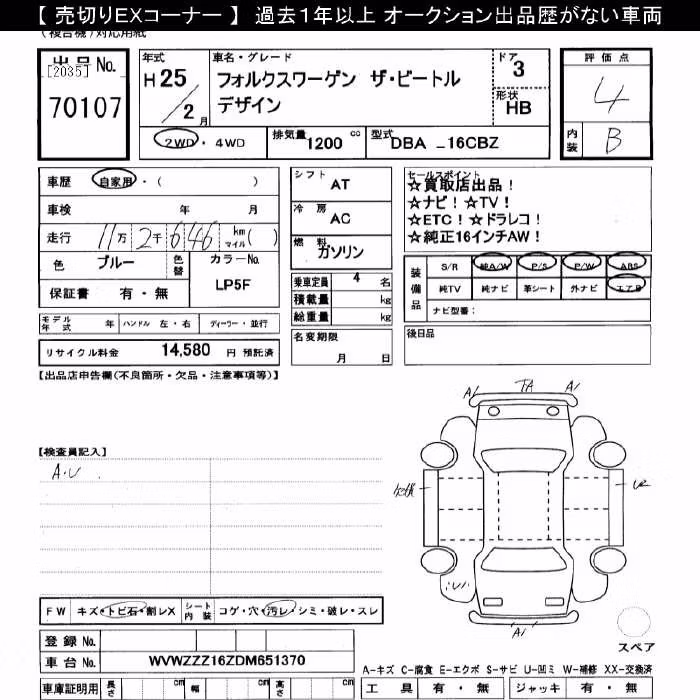 【 売切りEXコーナー 】 過去1年以上 オークション出品歴がない車両
(複合機)対応用紙
出品 No.
[2035]
70107
年式
H 25 / 2 月
車名・グレード
フォルクスワーゲン ザ・ビートル
デザイン
ドア
3
形状
HB
2WD ・ 4WD
排気量 1200 cc
型式 DBA _16CBZ
評価点
4
内装 B
車歴 自家用・( )
車検 年 月
走行 11万 2千 646 km マイル( )
色 ブルー 色替 カラーNo.
LP5F
保証書 有・無
シフト AT
冷房 AC
燃料 ガソリン
乗車定員 4 名
積載量 kg
総重量 kg
セールスポイント
☆買取店出品!
☆ナビ!☆TV!
☆ETC!☆ドラレコ!
☆純正16インチAW!
装備品
S/R 純A/W P/S P/W ABS
純TV 純ナビ 革シート 外ナビ エアB
ナビ型番:
モデル年式 年 ハンドル 左・右 ディーラー・並行
リサイクル料金 14,580 円 預託済
名変期限
月 日
後日品
【出品店申告欄(不良箇所・欠品・注意事項等)】
A1 TA A1
【検査員記入】
A・U
U2
A1
FW キズ・トビ石・割レX シート内装 コゲ・穴・汚レ・シミ・破レ・スレ
登録 No.
車台 No. WVWZZZ16ZDM651370
スペア
A-キズ C-腐食 E-エクボ S-サビ U-凹ミ W-補修 XX-交換済
車庫証明用 長さ cm 幅 cm 高さ cm
工具 有・無 ジャッキ 有・無